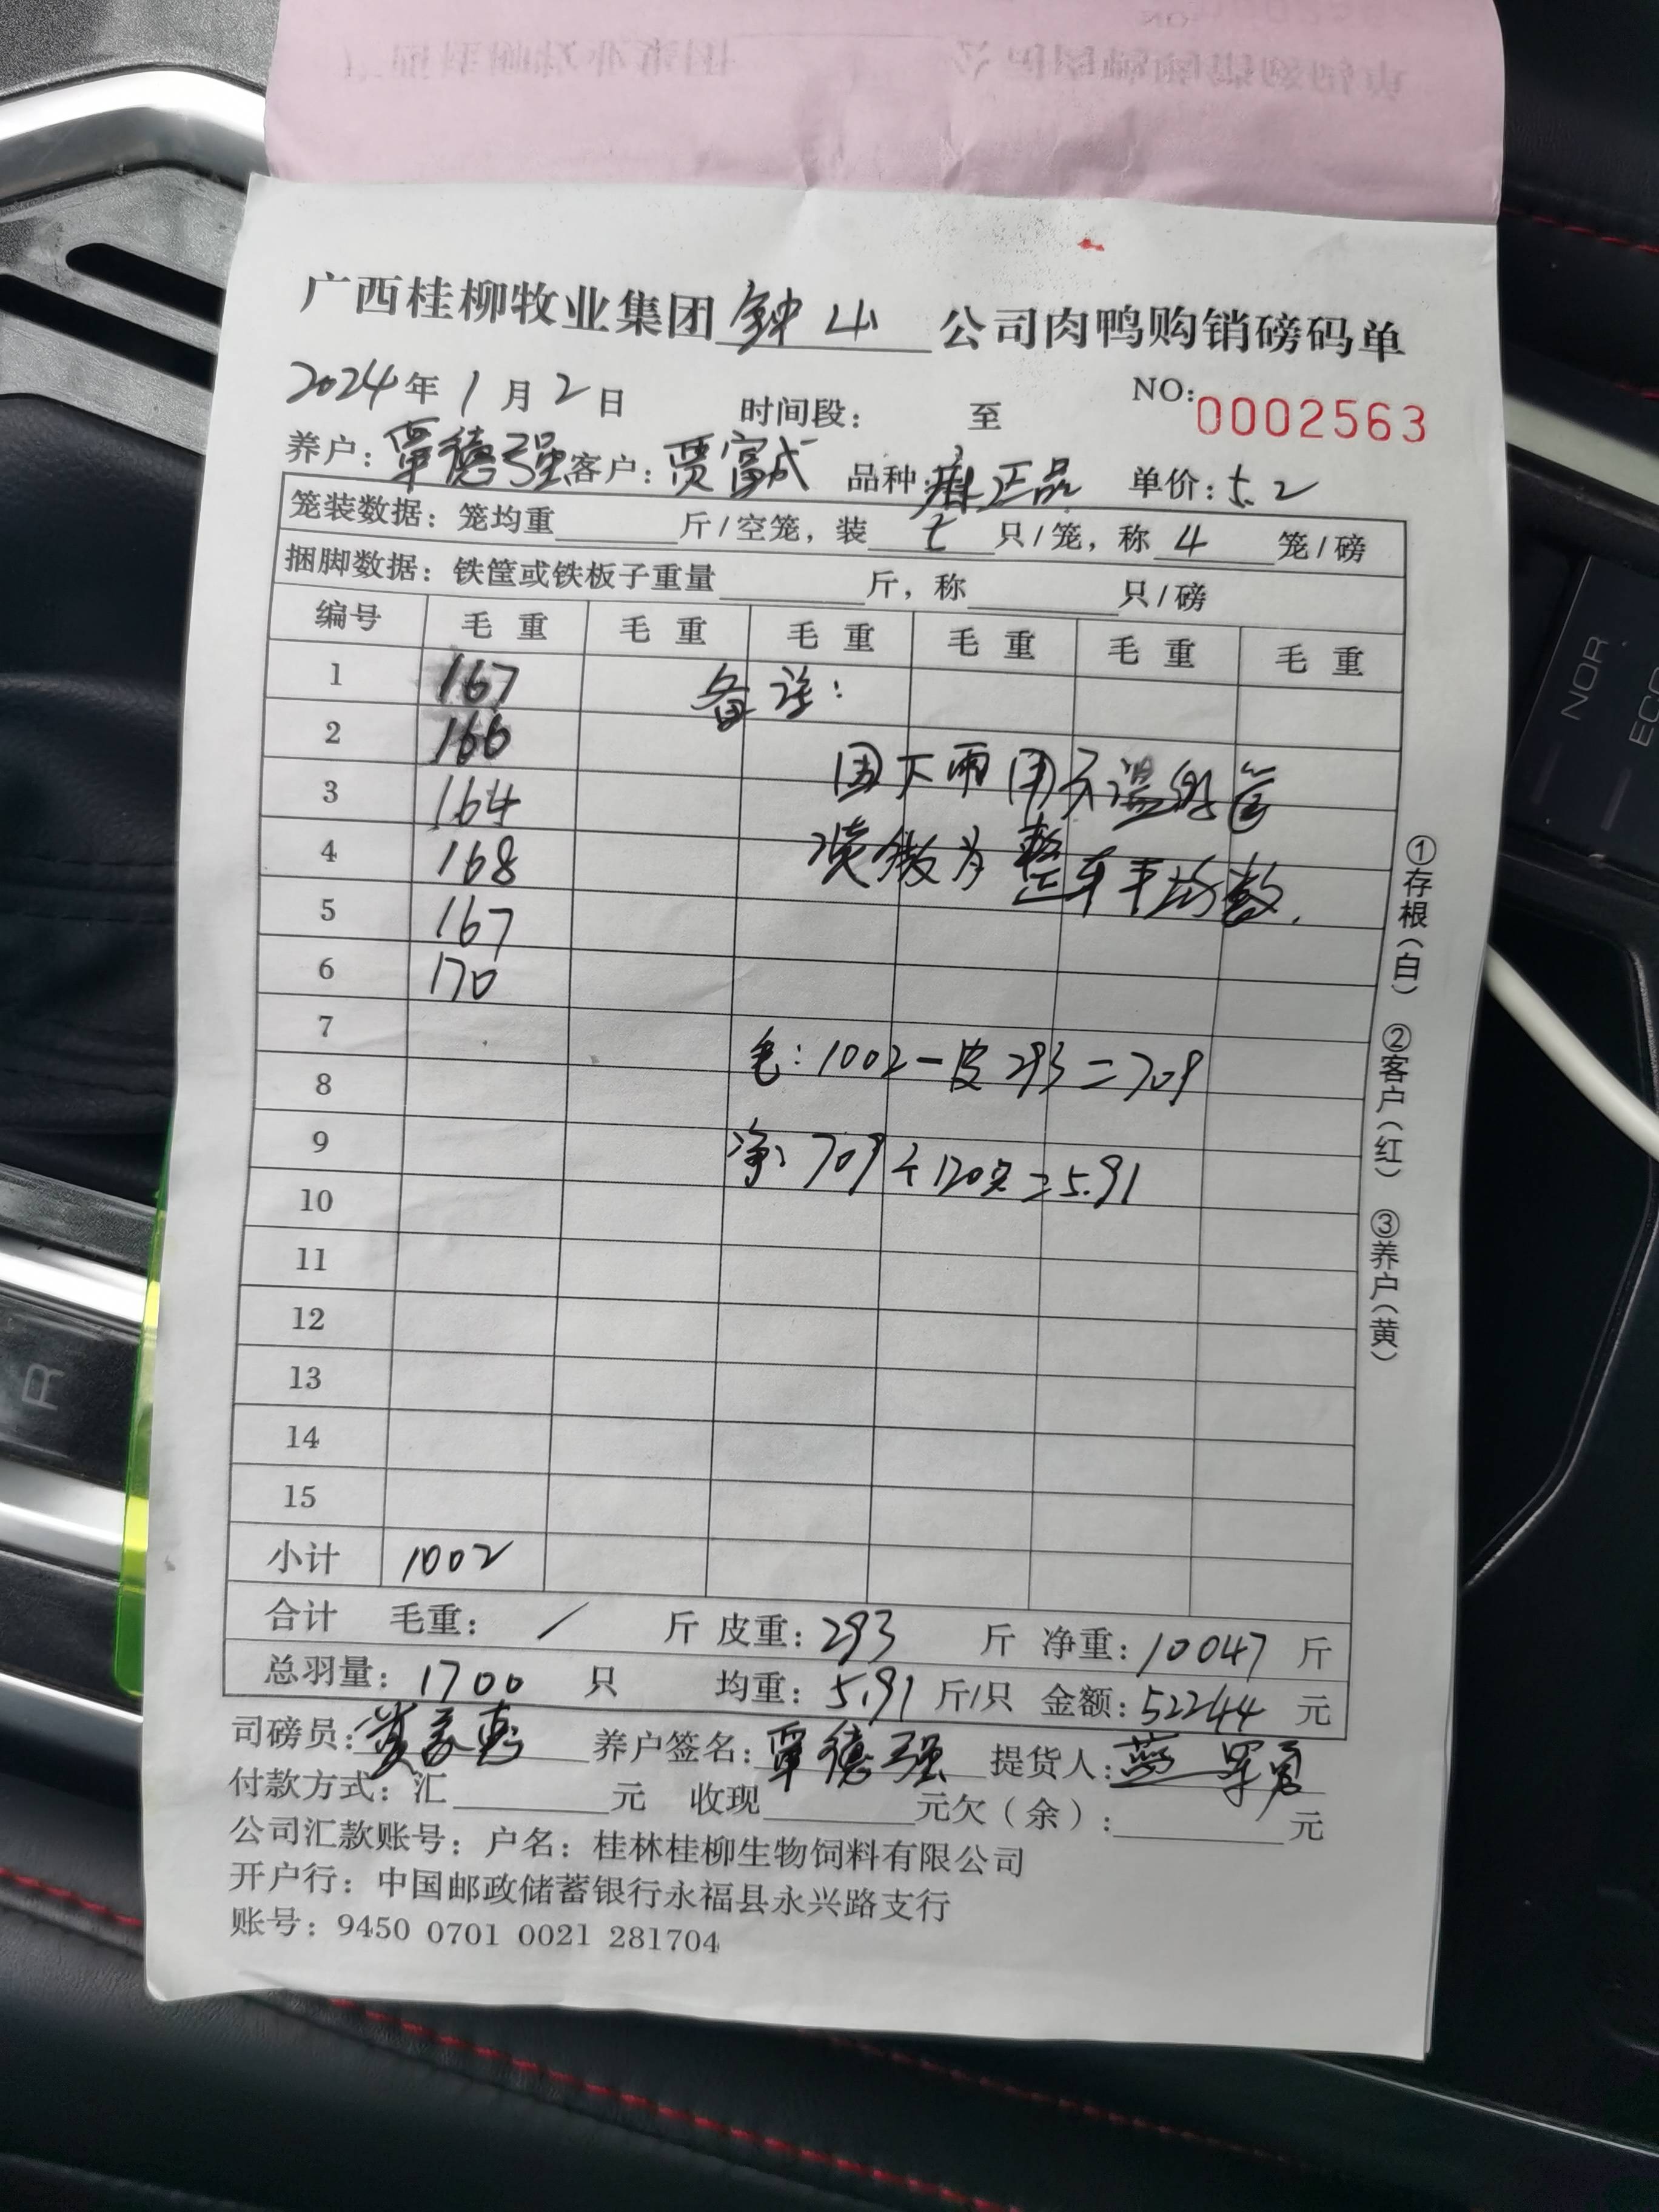 广西桂柳牧业集团钟山公司肉鸭购销磅码单
2024年1月2日 时间段: 至 NO:0002563
养户:覃德强 客户:贾富成 品种:麻正品 单价:5.2
笼装数据:笼均重 斤/空笼,装 只/笼,称4笼/磅
捆脚数据:铁筐或铁板子重量 斤,称 只/磅
编号 毛重 毛重 毛重 毛重 毛重 毛重
1 167 备注:
2 166
因下雨
3 164
4 168
为整车平均数.
5 167
6 170
7
毛:1002-皮293=709
8
9
净:709÷120只=5.91
10
11
12
13
14
15
小计 1002
合计 毛重:/ 斤 皮重:293 斤 净重:10047 斤
总羽量:1700 只 均重:5.91 斤/只 金额:52244 元
司磅员: 养户签名:覃德强 提货人:
付款方式:汇 元 收现 元欠(余): 元
公司汇款账号:户名:桂林桂柳生物饲料有限公司
开户行:中国邮政储蓄银行永福县永兴路支行
账号:9450 0701 0021 281704
①存根(白) ②客户(红) ③养户(黄)
NOR
ECO
R